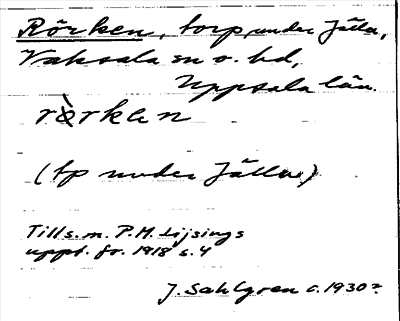 Rörken, torp under Jälla,
Vaksala sn o. hd,
Uppsala län.
ròrkən
(tp under Jälla)
Tills. m. P.H. Lijsings
uppt. fr. 1918 s. 4
J. Sahlgren c. 1930?